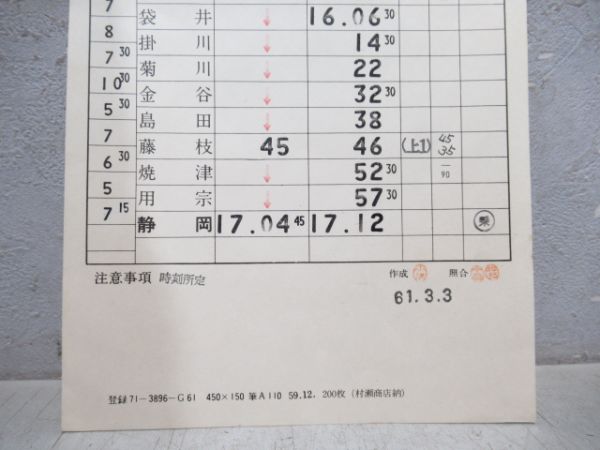 7
袋井 ↓ 16.06 30
8
掛川 ↓ 14 30
7 30
菊川 ↓ 22
10 30
金谷 ↓ 32 30
5 30
島田 ↓ 38
7
藤枝 45 46 (上1) 45 35
6 30
焼津 ↓ 52 30 — 90
5
用宗 ↓ 57 30
7 15
静岡 17.04 45 17.12
注意事項 時刻所定
作成 照合
61.3.3
登録71-3896-G61 450×150 筆A110 59.12. 200枚 (村瀬商店納)